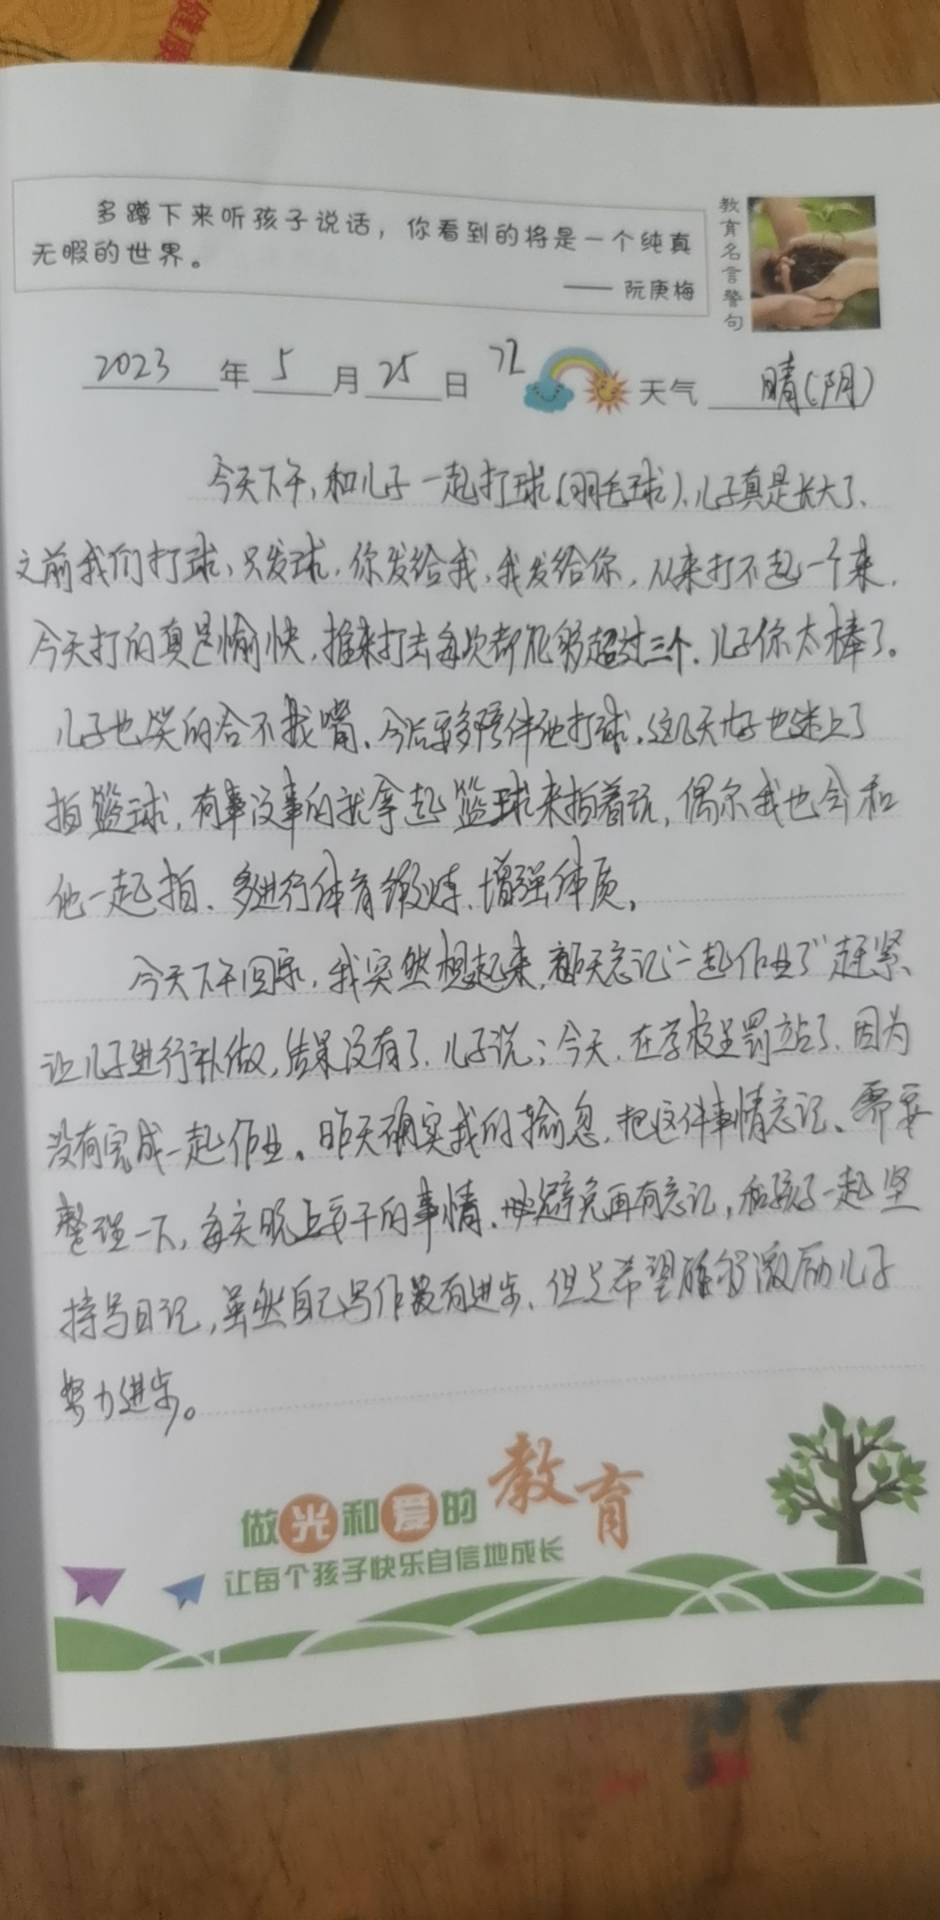 健康
多蹲下来听孩子说话，你看到的将是一个纯真
无暇的世界。
—— 阮庚梅
教育名言警句
2023年5月25日 72 天气 晴(阴)
今天下午,和儿子一起打球(羽毛球).儿子真是长大了.
之前我们打球,只发球,你发给我,我发给你,从来打不起一个来.
今天打的真是愉快,推来打去每次都能够超过三个.儿子你太棒了。
儿子也笑的合不拢嘴、今后要多陪伴他打球.这几天儿子也迷上了
拍篮球,有事没事的就拿起篮球来拍着玩,偶尔我也会和
他一起拍.多进行体育锻炼.增强体质,
今天下午回家,我突然想起来,昨天忘记"一起作业了"赶紧
让儿子进行补做,结果没有了.儿子说:今天.在学校里罚站了.因为
没有完成一起作业。昨天确实我的疏忽,把这件事情忘记、需要
整理一下,每天晚上要干的事情、避免再有忘记,和孩子一起坚
持写日记,虽然自己写作没有进步、但是希望能够激励儿子
努力进步。
做光和爱的教育
让每个孩子快乐自信地成长